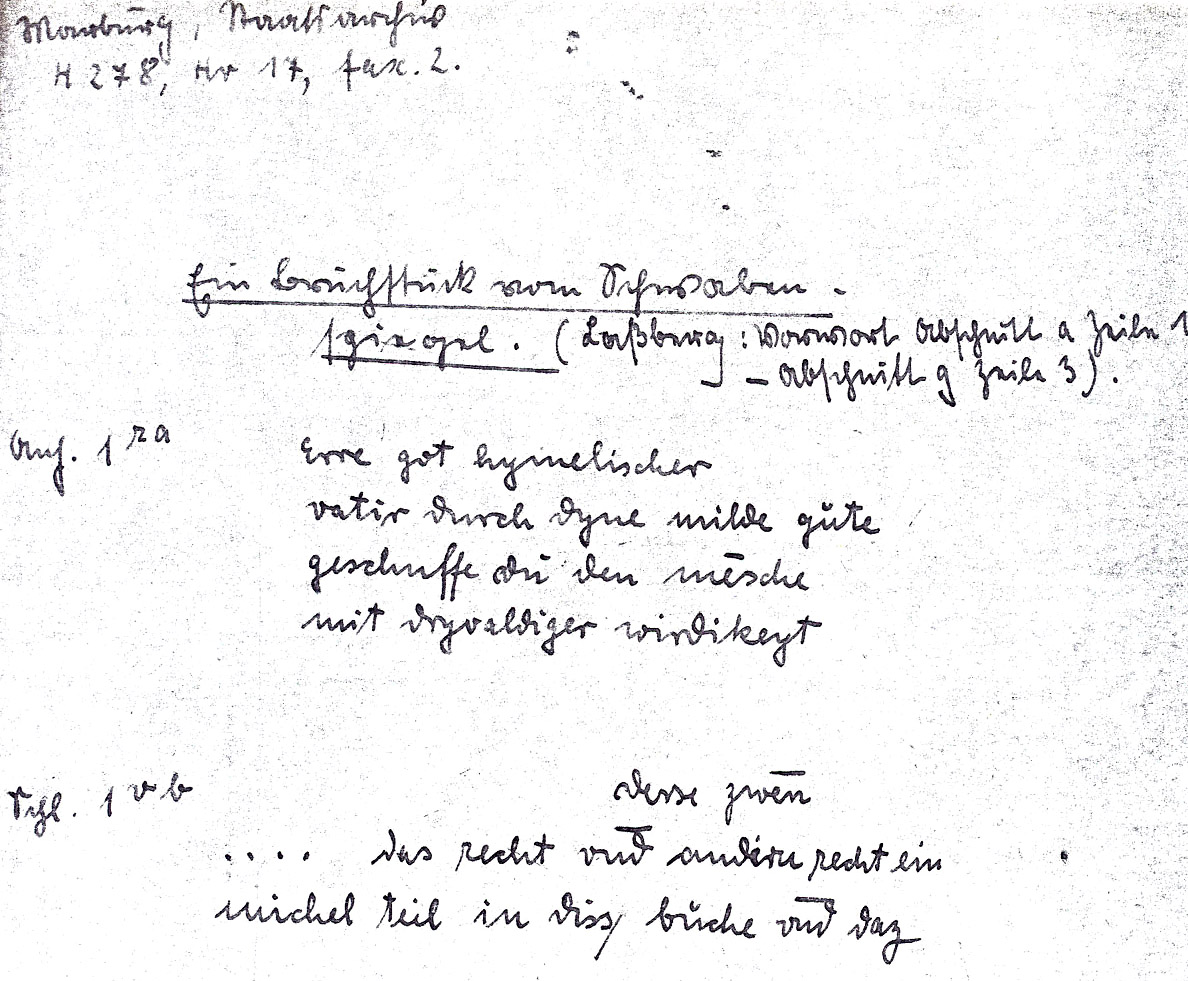 Marburg, Staatsarchiv
H 278, Nr 17, fasc. 2.
Ein Bruchstück vom Schwaben-
spiegel. (Laßberg: Vorwort Abschnitt a Zeile 1
– Abschnitt g Zeile 3).
Anf. 1 ra
Erre got hymelischer
vatir durch dyne milde gůte
geschuffe du den mēsche
mit dryvaldiger wirdikeyt
Schl. 1 vb
desse zwēn
.... das recht vnd̄ andern recht ein
michel teil in diss bůche vnd̄ daz